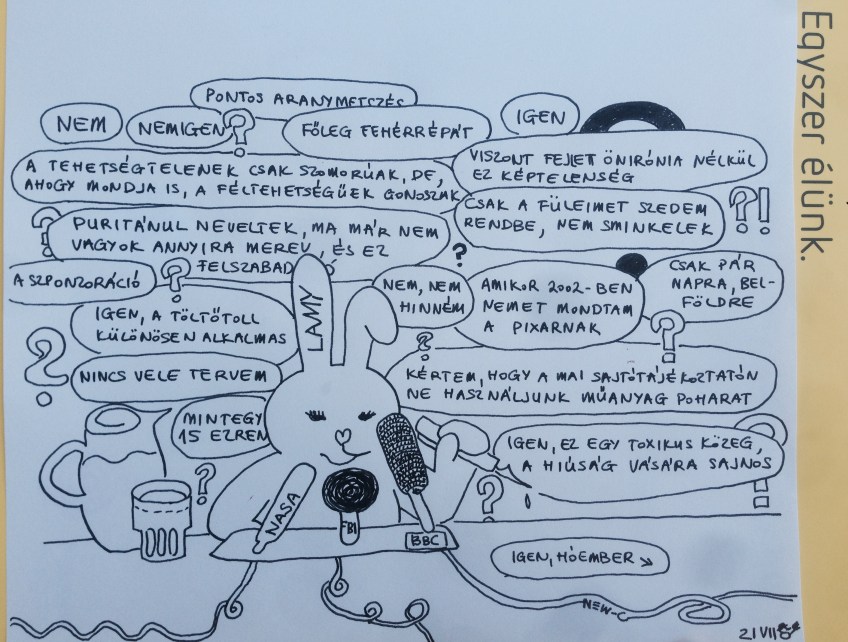 Egyszer élünk.
PONTOS ARANYMETSZÉS
NEM
NEMIGEN
FŐLEG FEHÉRRÉPÁT
IGEN
A TEHETSÉGTELENEK CSAK SZOMORÚAK, DE,
AHOGY MONDJA IS, A FÉLTEHETSÉGŰEK GONOSZAK
VISZONT FEJLET ÖNIRÓNIA NÉLKÜL
EZ KÉPTELENSÉG
CSAK A FÜLEIMET SZEDEM
RENDBE, NEM SMINKELEK
?!
PURITÁNUL NEVELTEK, MA MÁR NEM
VAGYOK ANNYIRA MEREV, ÉS EZ
FELSZABAD Ó
A SZPONZORÁCIÓ
NEM, NEM
HINNÉM
AMIKOR 2002-BEN
NEMET MONDTAM
A PIXARNAK
CSAK PÁR
NAPRA, BEL-
FÖLDRE
IGEN, A TÖLTŐTOLL
KÜLÖNÖSEN ALKALMAS
LAMY
NINCS VELE TERVEM
KÉRTEM, HOGY A MAI SAJTÓTÁJÉKOZTATÓN
NE HASZNÁLJUNK MŰANYAG POHARAT
MINTEGY
15 EZREN
IGEN, EZ EGY TOXIKUS KÖZEG,
A HIÚSÁG VÁSÁRA SAJNOS
NASA
FBI
BBC
IGEN, HÓEMBER ↘
NEW-C
21 VII